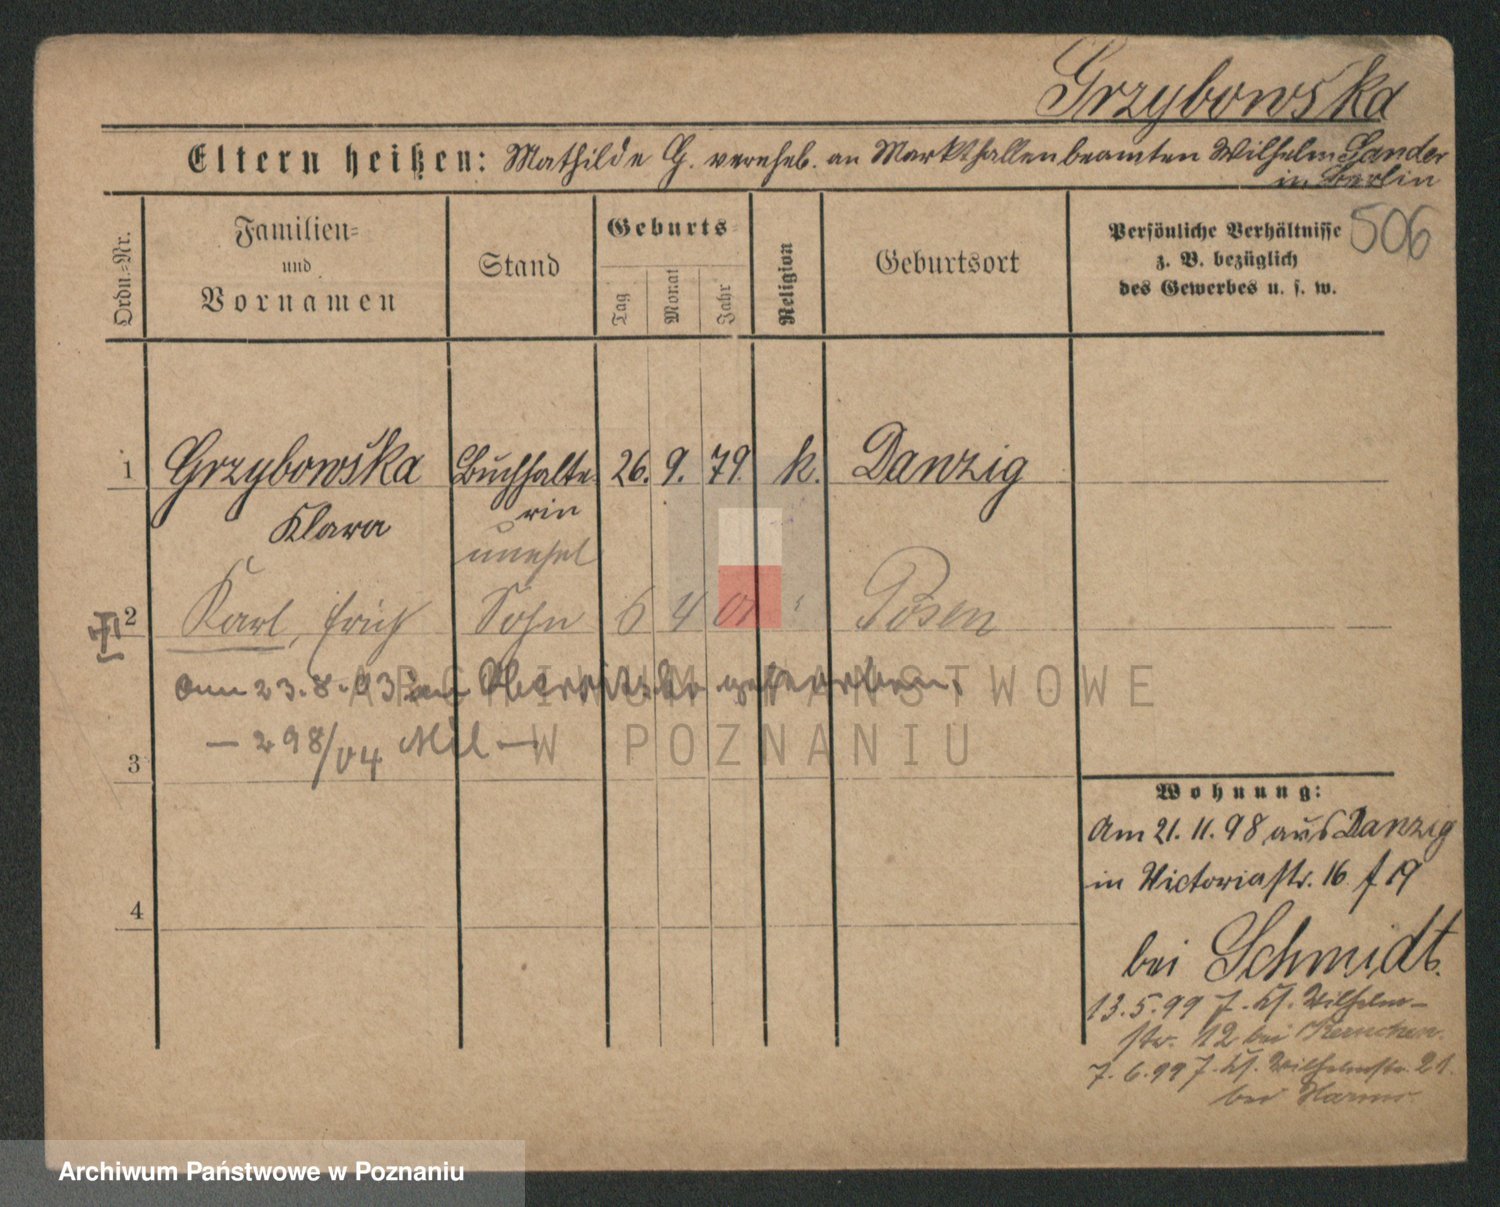 Grzybowska
Eltern heißen: Mathilde G. vereheb. an Markthallenbeamten Wilhelm Sander
in Berlin
506
Ordn.-Nr.
Familien-
und
Vornamen
Stand
Geburts-
Tag
Monat
Jahr
Religion
Geburtsort
Persönliche Verhältnisse
z. B. bezüglich
des Gewerbes u. s. w.
1 Grzybowska Buchhalte 26. 9. 79. k. Danzig
Klara rin
unehel
2 Karl, Erich Sohn 6 4 01 Posen
am 23.8.03 in gestorben.
— 298/04 Mil —
3
4
ARCHIWUM PAŃSTWOWE
W POZNANIU
Wohnung:
Am 21. 11. 98 aus Danzig
in Victoriastr. 16 f 19
bei Schmidt.
13.5.99 Wilhelm-
str. 12 bei
7.6.99 Wilhelmstr. 21.
bei
Archiwum Państwowe w Poznaniu